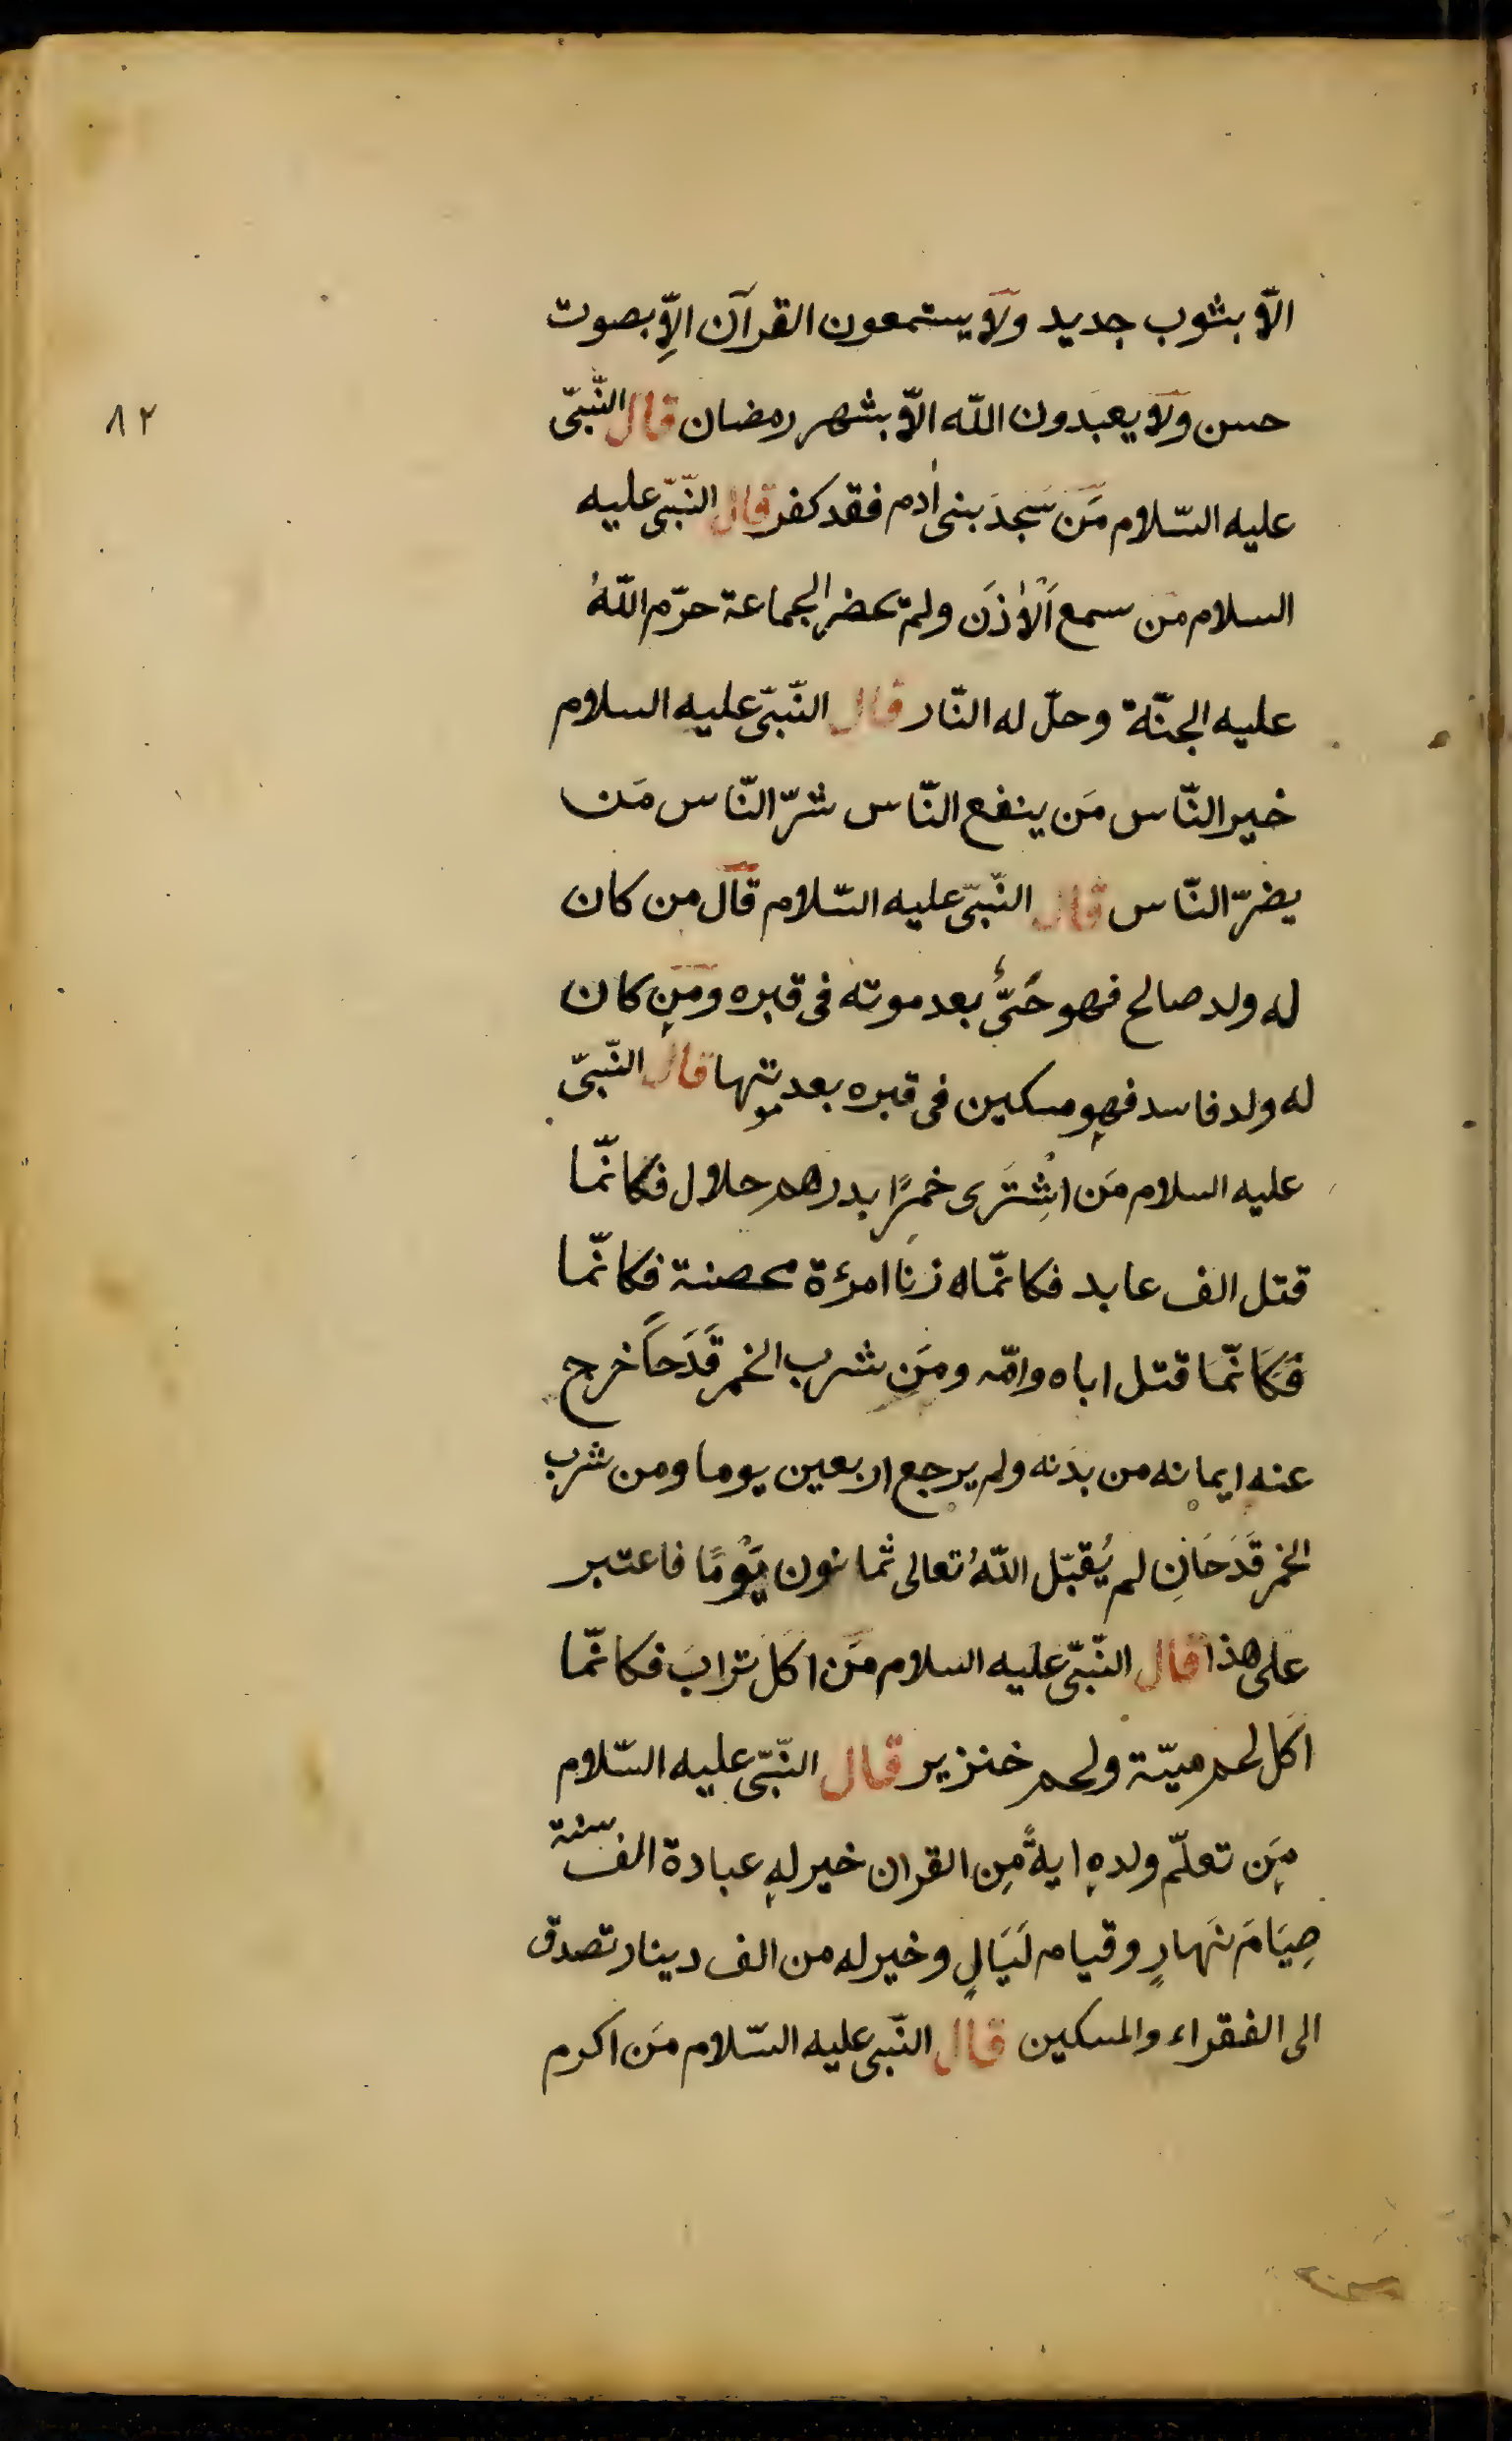 الّا بثوب جديد ولا يستمعون القرآن الّا بصوت
حسن ولا يعبدون اللّه الّا بشهر رمضان قال النّبىّ
٨٢
عليه السّلام مَن سَجدَ بنى اٰدم فقد كفر قال النّبىّ عليه
السلام من سمع اَلْاُذَن ولم تحضر الجماعة حرّم اللّهُ
عليه الجنّة وحلّ له النّار قال النّبىّ عليه السلام
خير النّاس مَن ينفع النّاس شرّ النّاس مَن
يضرّ النّاس قال النّبىّ عليه السّلام قال من كان
له ولد صالح فهو حَىٌّ بعد موته فى قبره ومَن كان
له ولد فاسد فهو مسكين فى قبره بعد موتها قال النّبىّ
عليه السلام مَن اشِْتَرى خمرًا بدرهم حلال فكانّما
قتل الف عابد فكانّماه زنا امرءة محصنة فكانّما
فَكَانّمَا قتل اباه وامّه ومَن شرب الخمر قَدَحاً خرج
عنه ايمانه من بدَنه ولم يرجع اربعين يوما ومن شرب
الخمر قَدَحَانِ لم يُقبَل اللّهُ تعالى ثمانون يَوْمًا فاعتبر
على هذا قال النّبىّ عليه السلام مَن اكَلَ ترابَ فكانّما
اكَل لحم ميتة ولحم خنزير قال النّبىّ عليه السّلام
مَن تعلّم ولدهِ ايةً مِن القران خير لهِ عبادة الف سنة
صِيَامَ نَهارٍ وقيام لَيَالٍ وخير له من الف دينار تصدق
الى الفقراء والمسكين قال النّبى عليه السّلام مَن اكرم